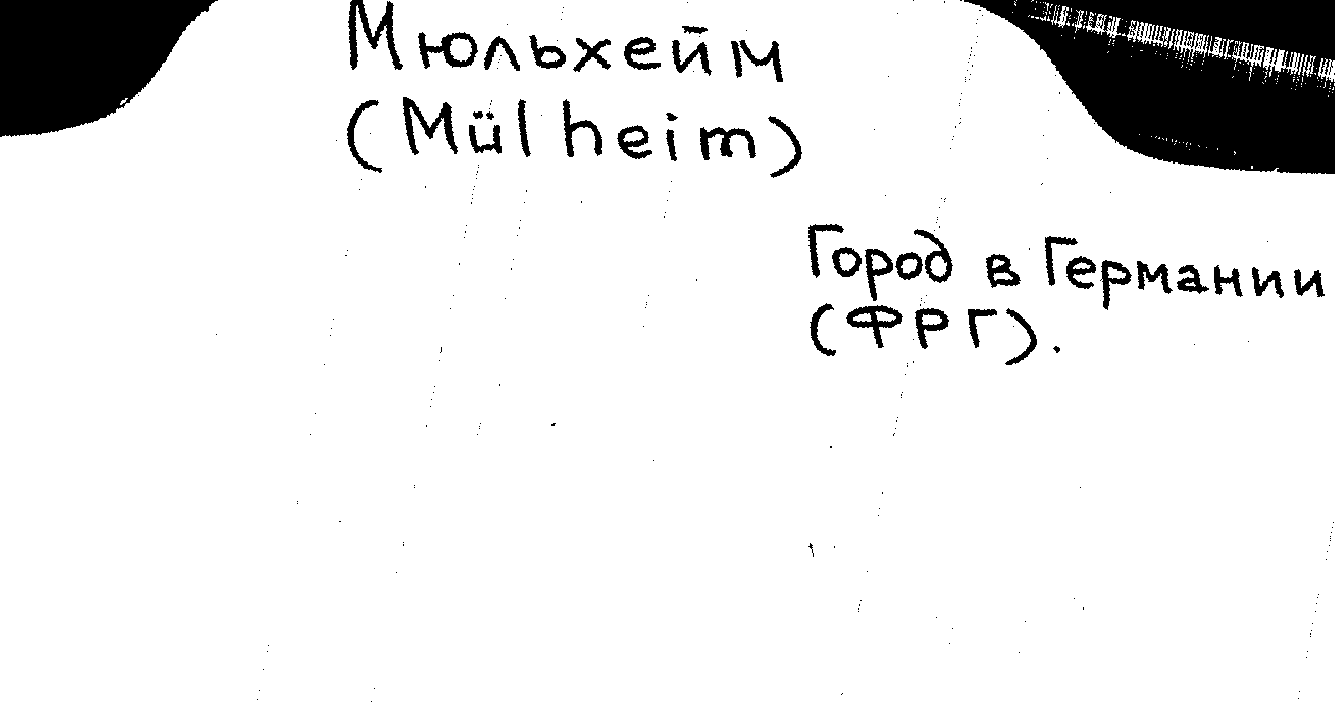 Мюльхейм
(Mülheim)
Город в Германии
(ФРГ).